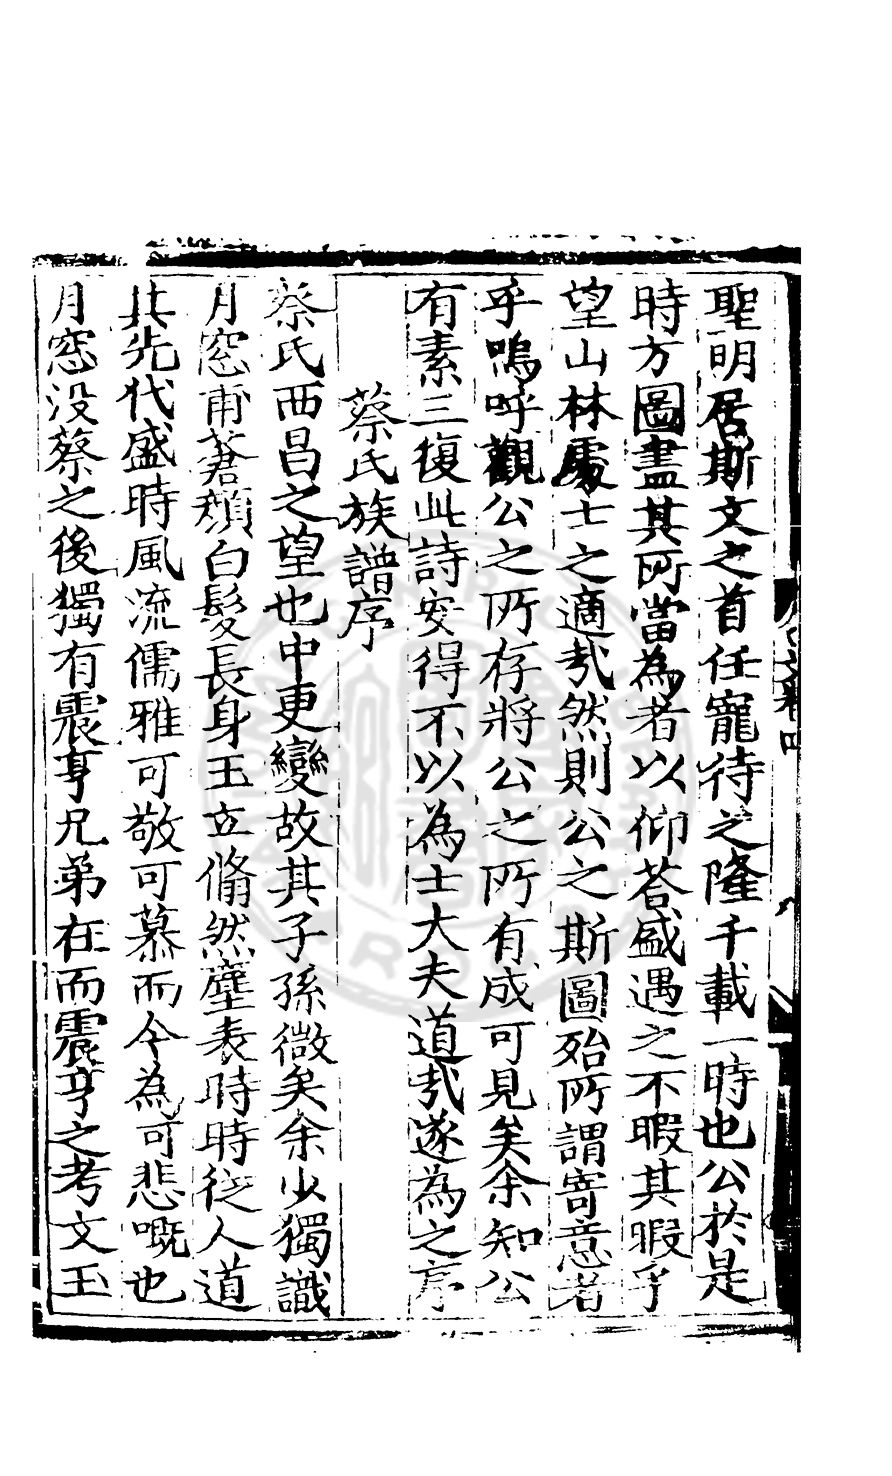 聖明居斯文之首任寵待之隆千載一時也公於是
時方圖畫其所當為者以仰荅盛遇之不暇其暇乎
望山林處士之適㢤然則公之斯圖殆所謂寄意者
乎嗚呼觀公之所存將公之所有成可見矣余知公
有素三復此詩安得不以為士大夫道㢤遂為之序
蔡氏族譜序
蔡氏西昌之望也中更變故其子孫微矣余少獨識
月窓甫蒼頽白髮長身玉立翛然塵表時時從人道
其先代盛時風流儒雅可敬可慕而今為可悲嘅也
月窓没蔡之後獨有震亨兄弟在而震亨之考文玉